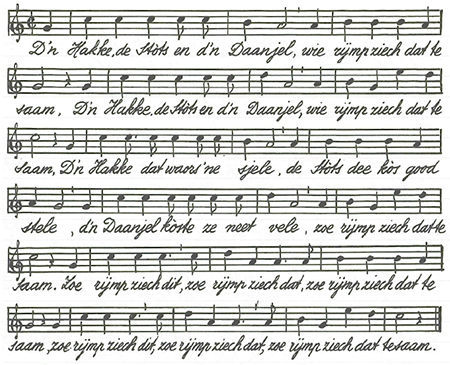 D'n Hakke, de Stòts en d'n Daanjel, wie rijmp ziech dat te
saam, D'n Hakke, de Stòts en d'n Daanjel, wie rijmp ziech dat te
saam, D'n Hakke dat waors 'ne sjele, de Stòts dee kòs good
stele, d'n Daanjel kòste ze neet vele, zoe rijmp ziech dat te
saam. Zoe rijmp ziech dit, zoe rijmp ziech dat, zoe rijmp ziech dat te
saam, zoe rijmp ziech dit, zoe rijmp ziech dat, zoe rijmp ziech dat tesaam.